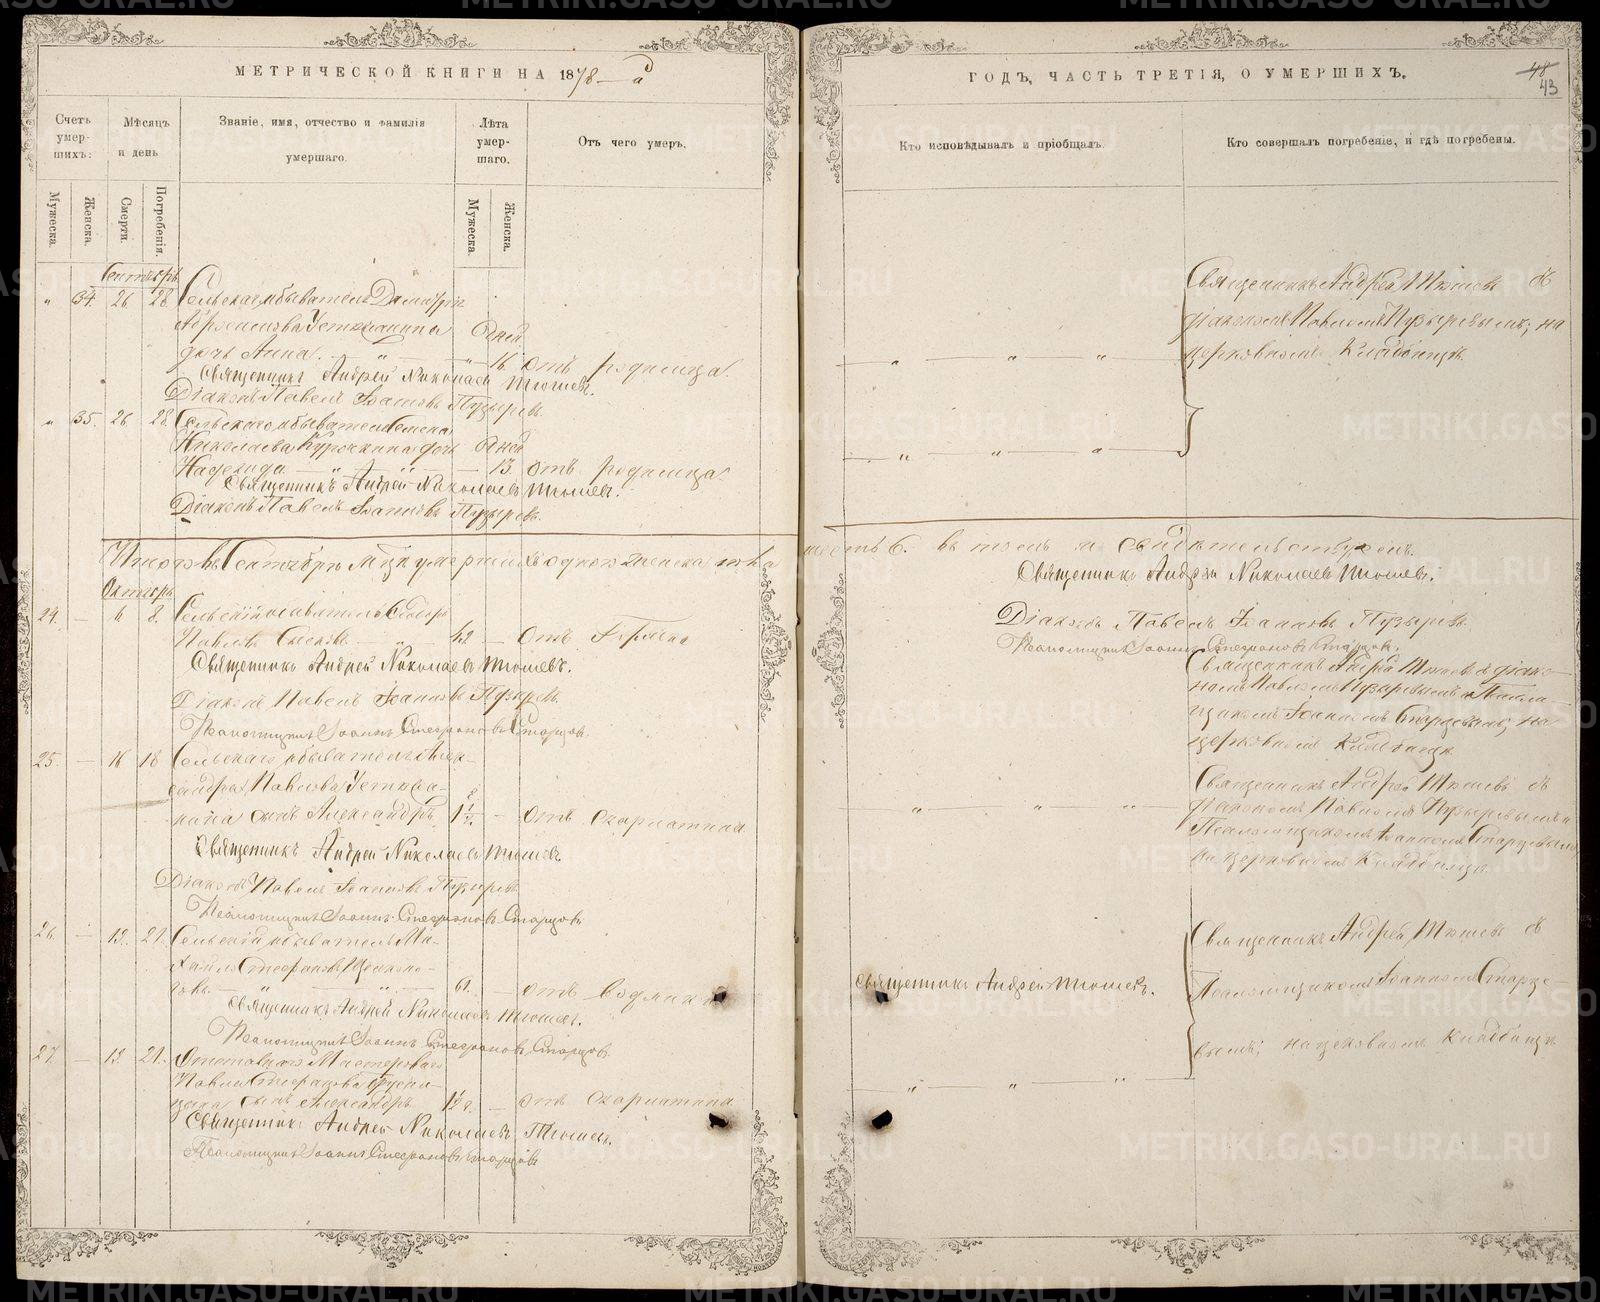 МЕТРИЧЕСКОЙ КНИГИ НА 1878 —
Счетъ умер-шихъ:
Мужеска.
Женска.
Мѣсяцъ и день
Смерти.
Погребенія.
Званіе, имя, отчество и фамилія умершаго.
Лѣта умер-шаго.
Мужеска
Женска.
Отъ чего умеръ.
Сентябрь
" 34. 26 28. Сельскаго обывателя Димитрія
дочь Анна. — " — " 16 отъ родимца
Дней
Священникъ Андрей Николаевъ Тюшевъ.
Діаконъ Павелъ Іоанновъ Пузыревъ.
" 35. 26 28. Сельскаго обывателя Семена
Николаева Курочкина дочь Дней
Надежда — " — " — 13 отъ родимца
Священникъ Андрей Николаевъ Тюшевъ.
Діаконъ Павелъ Іоанновъ Пузыревъ.
Итого въ Сентябрѣ
Октябрь
24. — 6 8. Сельскій обыватель
42 — Отъ
Священникъ Андрей Николаевъ Тюшевъ.
Діаконъ Павелъ Іоанновъ Пузыревъ.
Псаломщикъ Іоаннъ Стефановъ Старцов.
25. — 16 18 Сельскаго обывателя Алек-
сандра Павлова
сынъ Александръ 1½ — отъ скарлатины
Священникъ Андрей Николаевъ Тюшевъ.
Діаконъ Павелъ Іоанновъ Пузыревъ
Псаломщикъ Іоаннъ Стефановъ Старцовъ
26. — 19. 21. Сельскій обыватель Ми-
хаилъ Стефановъ
61. — отъ водянки
Священникъ Андрей Николаевъ Тюшевъ.
Псаломщикъ Іоаннъ Стефановъ Старцовъ.
27. — 19. 21. Отставнаго Мастероваго
Павла Стефанова
сынъ Александръ 1½ г. — отъ скарлатины
Священникъ Андрей Николаевъ Тюшевъ.
Псаломщикъ Іоаннъ Стефановъ Старцовъ
ГОДЪ, ЧАСТЬ ТРЕТІЯ, О УМЕРШИХЪ.
48
43
Кто исповѣдывалъ и пріобщалъ.
Кто совершалъ погребеніе, и гдѣ погребены.
Священникъ Андрей Тюшевъ съ
діакономъ Павломъ Пузыревымъ; на
церковномъ кладбищѣ.
— " — " — " —
— " — " — " —
шесть 6. въ томъ и свидѣтельствуемъ.
Священникъ Андрей Николаевъ Тюшевъ.
Діаконъ Павелъ Іоанновъ Пузыревъ.
Псаломщикъ Іоаннъ Стефановъ Старцов.
Священникъ Андрей Тюшевъ съ діако-
номъ Павломъ Пузыревымъ и Псалом-
щикомъ Іоанномъ Старцевымъ; на
церковномъ кладбищѣ.
Священникъ Андрей Тюшевъ съ
— " — " — " — діакономъ Павломъ Пузыревымъ и
Псаломщикомъ Іоанномъ Старцевымъ
на церковномъ кладбищѣ.
Священникъ Андрей Тюшевъ съ
Священникъ Андрей Тюшевъ.
Псаломщикомъ Іоанномъ Старце-
вымъ; на церковномъ кладбищѣ
— " — " — " —
METRIKI.GASO-URAL.RU